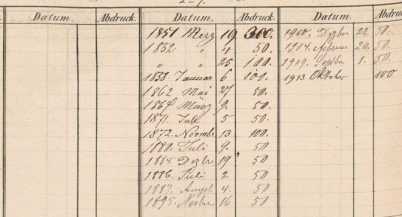 Datum. Abdruck. Datum. Abdruck. Datum. Abdruck.
1851 März 19 300. 1908. Dezbr 22. 50.
1852 " 4 50. 1914 20. 50.
" " 25 100. 1919. 1. 50.
1853 Januar 6 100. 1913 Oktober 100
1862 Mai 27 50.
1864 März 9. 50.
1871. Juli 5 50.
1872. Novemb 13 100.
1880. Juli 9. 50
1885 Dezbr 19 50
1886 Juli 2 50
1887. 4. 50
1895 16 50